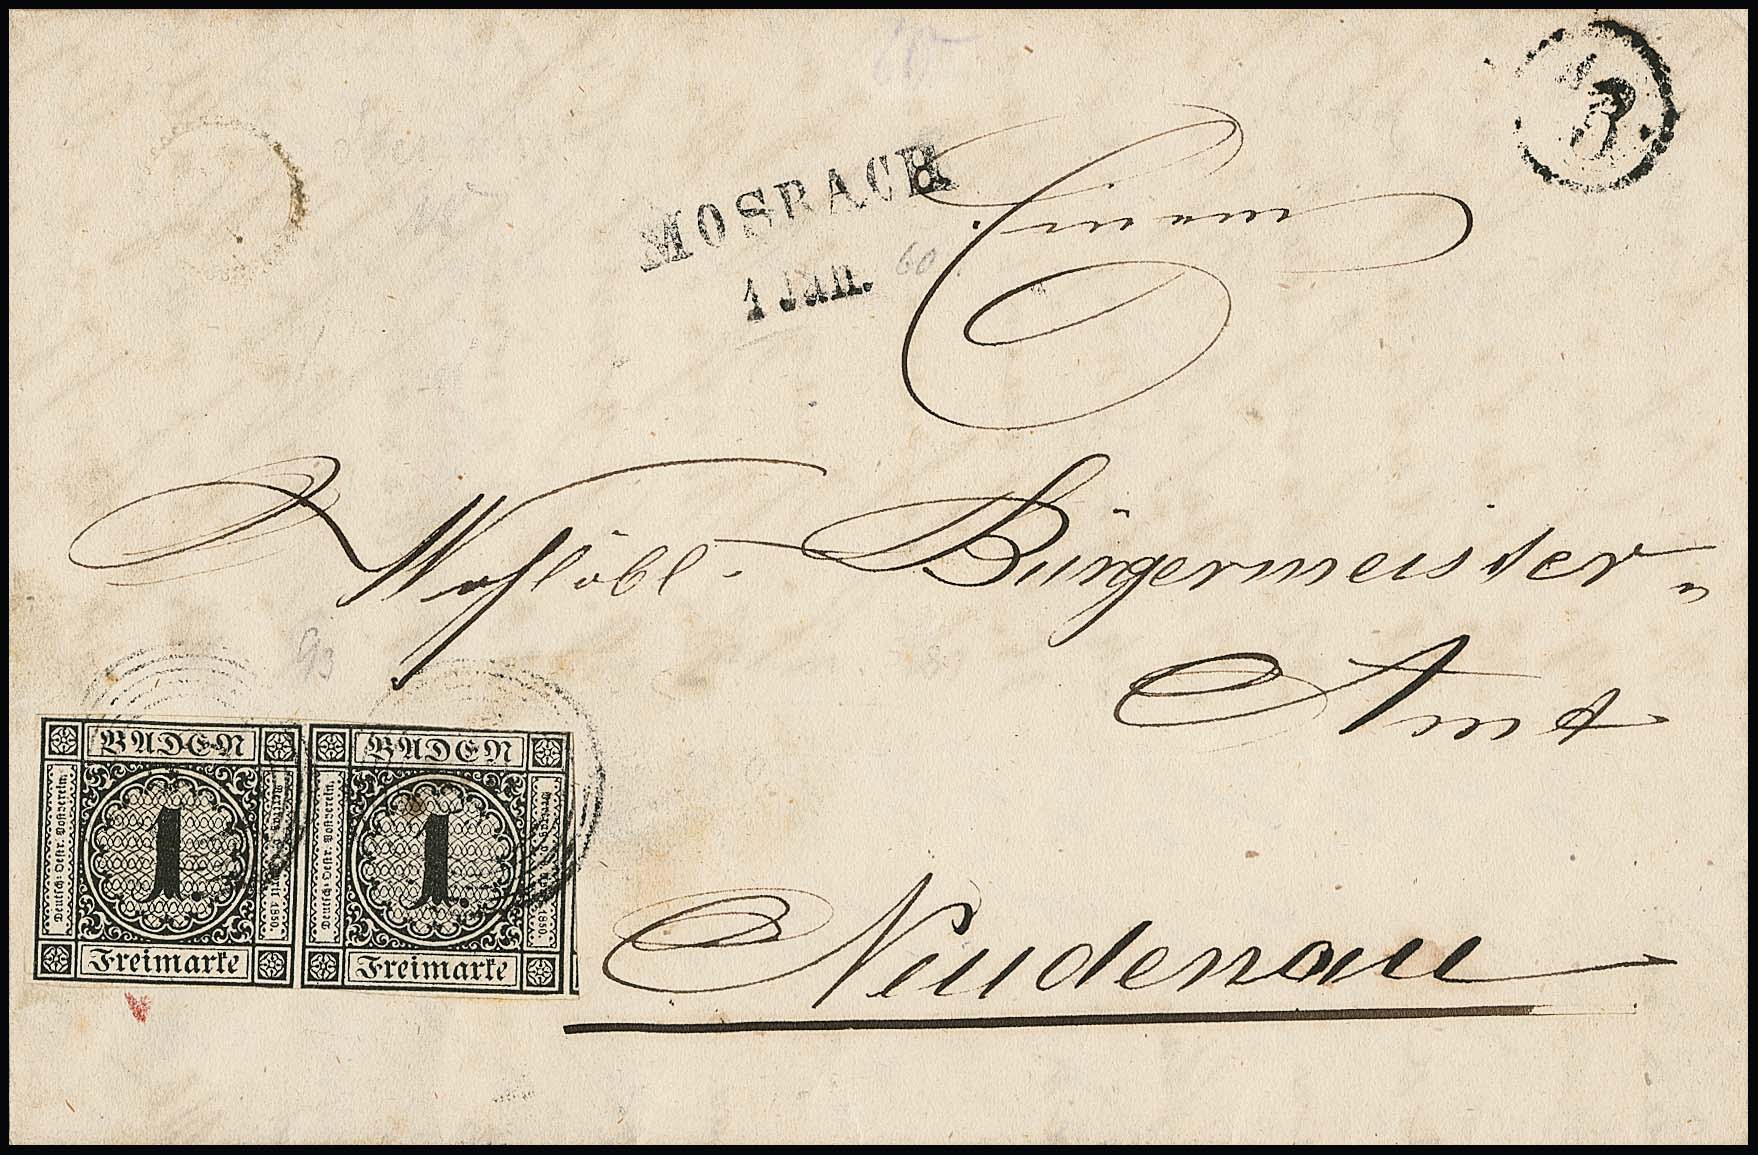 B.
MOSBACH
1 Jan. 60
Einem
Wohllöbl. Bürgermeister-
Amt
Neudenau
93
BADEN
1.
Freimarke
Deutsch: Oestr. Postverein.
Vertrag v. 6. April 1850.
BADEN
1.
Freimarke
Deutsch: Oestr. Postverein.
Vertrag v. 6. April 1850.